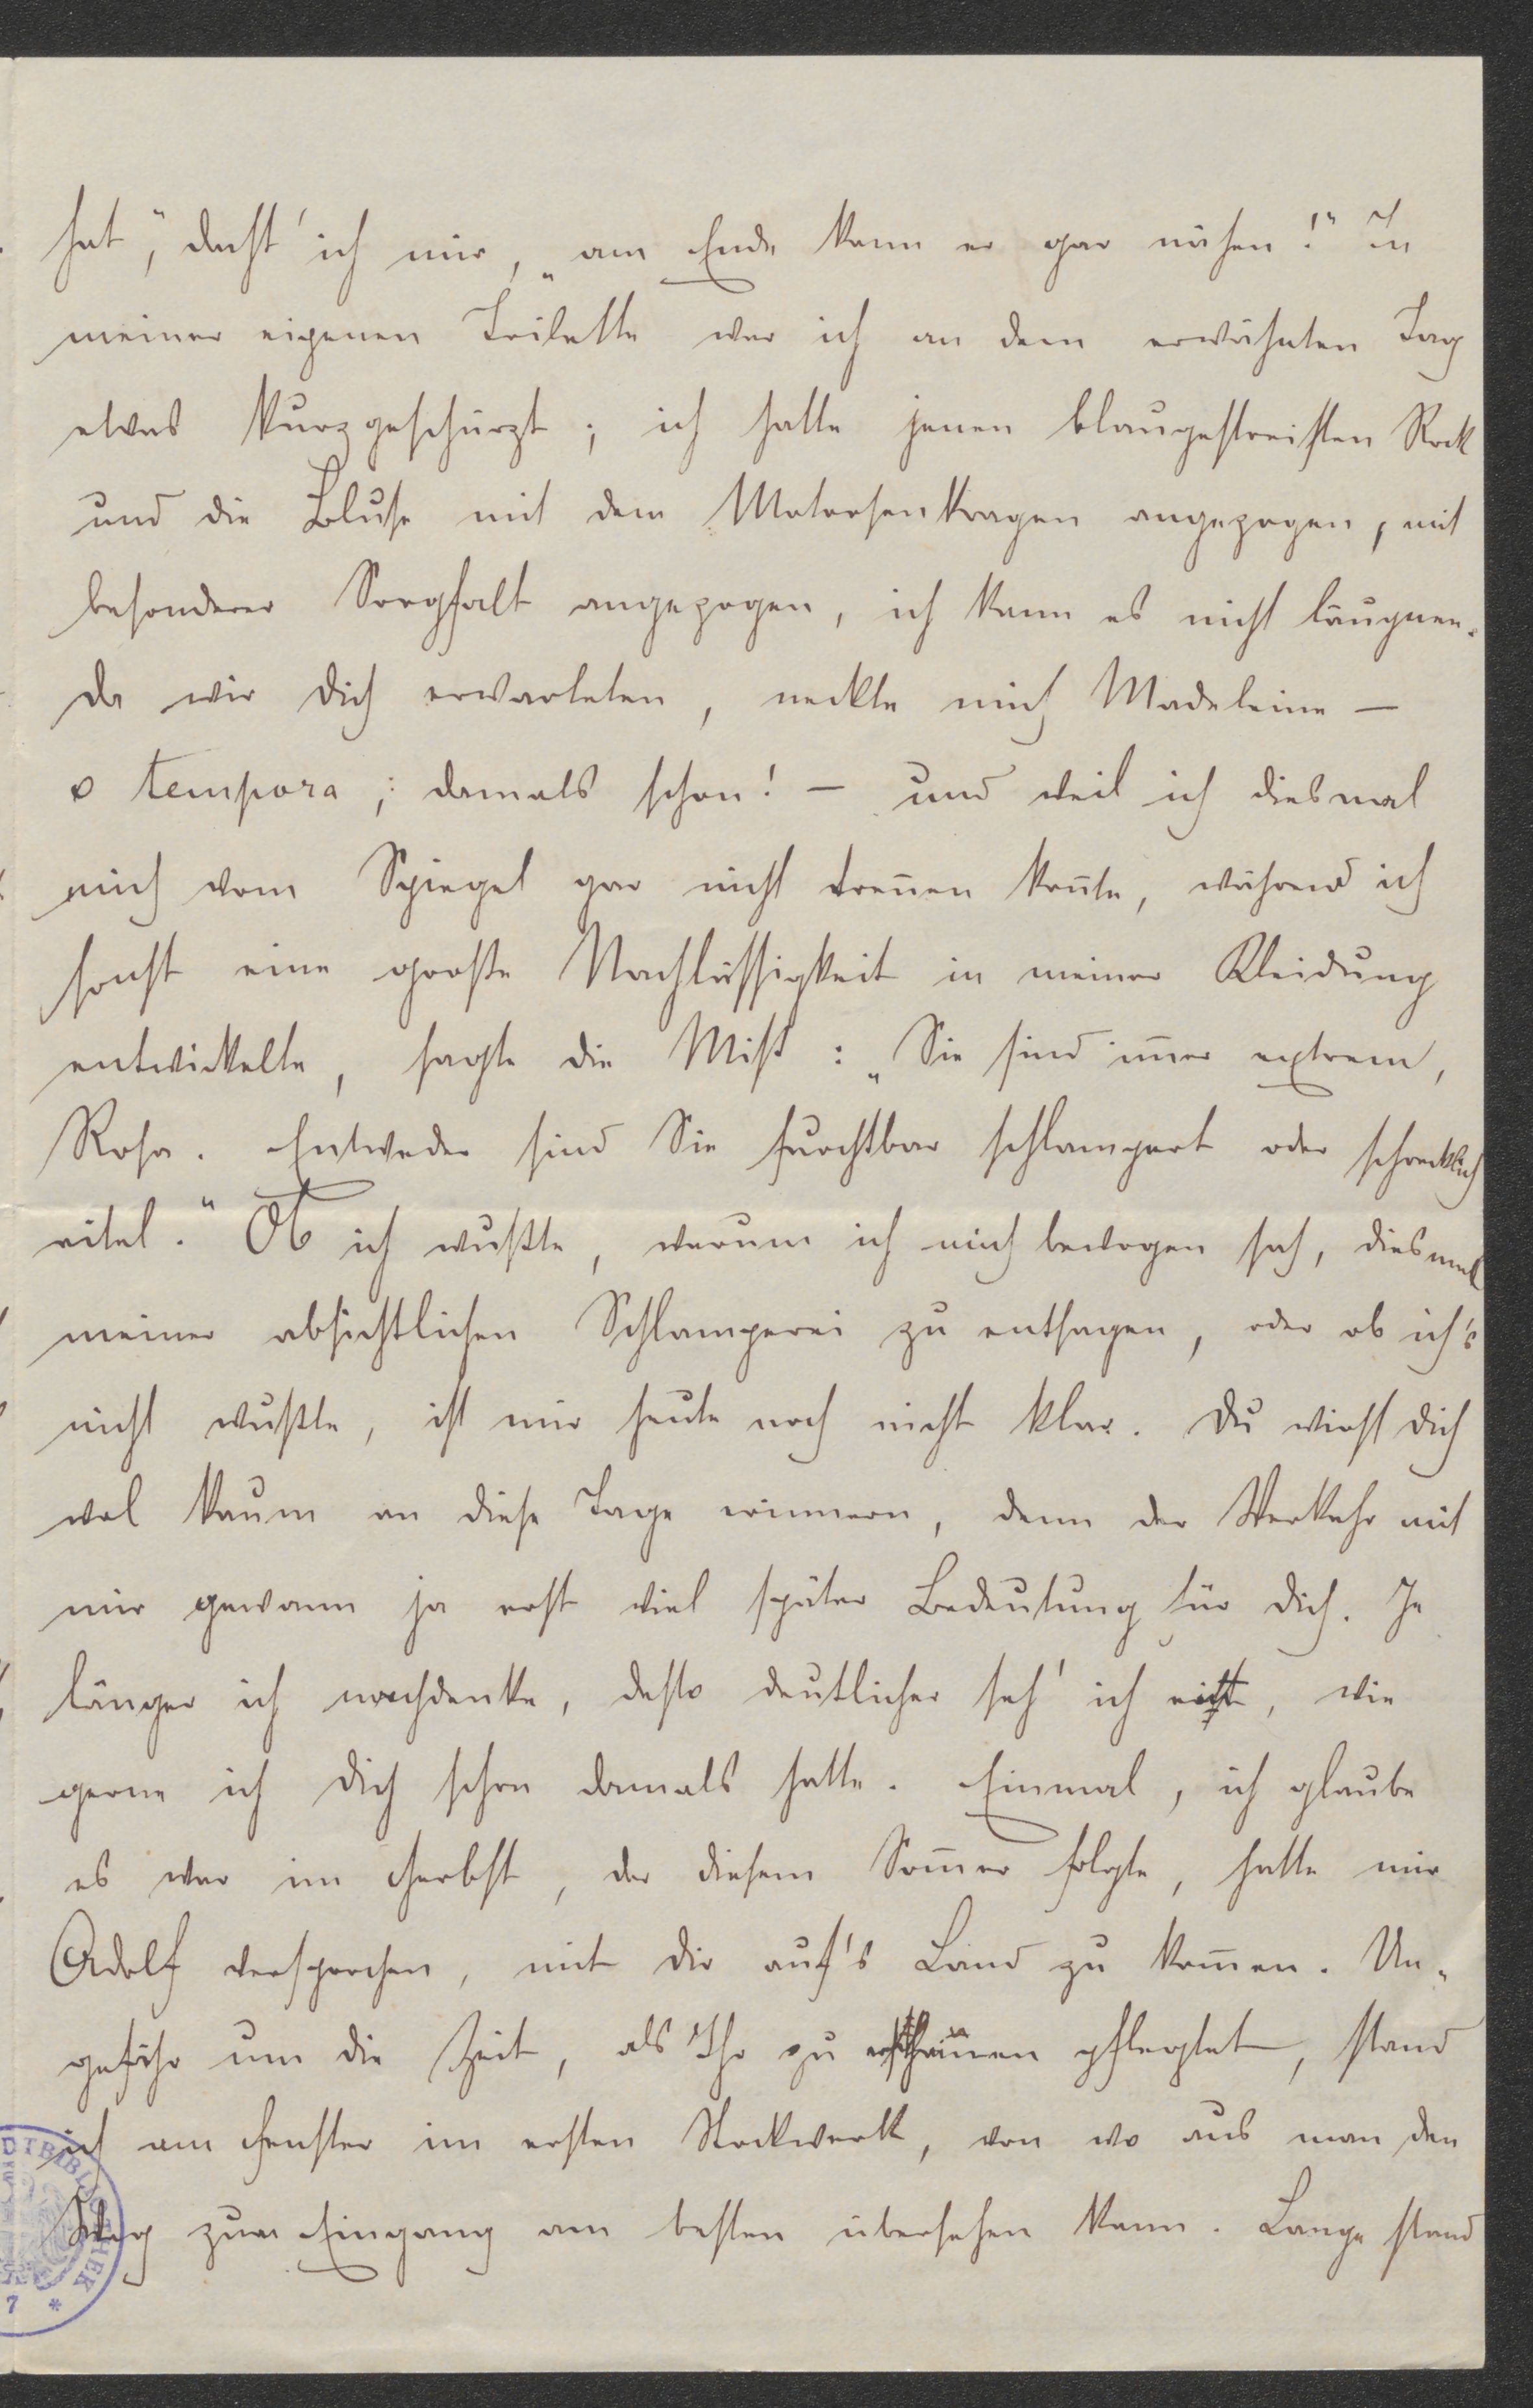 hat", dacht' ich mir, „am Ende kann er gar nähen!" In
meiner eigenen Toilette war ich an dem erwähnten Tag
etwas kurzgeschürzt; ich hatte jenen blaugestreiften Rock
und die Bluse mit dem Matrosenkragen angezogen, mit
besonderer Sorgfalt angezogen, ich kann es nicht läugnen.
Da wir Dich erwarteten, neckte mich Madeleine —
o tempora; damals schon! — und weil ich diesmal
mich vom Spiegel gar nicht treñen koñte, während ich
sonst eine große Nachlässigkeit in meiner Kleidung
entwickelte, sagte die Miß: „Sie sind im̄er extrem,
Rosa. Entweder sind Sie furchtbar schlampert oder schrecklich
eitel." Ob ich wußte, warum ich mich bewogen sah, diesmal
meiner absichtlichen Schlamperei zu entsagen, oder ob ich's
nicht wußte, ist mir heute noch nicht klar. Du wirst Dich
wol kaum an diese Tage erinnern, denn der Verkehr mit
mir gewann ja erst viel später Bedeutung für Dich. Je
länger ich nachdenke, desto deutlicher seh' ich, wie
gerne ich Dich schon damals hatte. Einmal, ich glaube
es war im Herbst, der diesem Som̄er folgte, hatte mir
Adolf versprochen, mit Dir auf's Land zu kom̄en. Un-
gefähr um die Zeit, als Ihr zu erscheinen pflegtet, stand
ich am Fenster im ersten Stockwerk, von wo aus man den
Weg zum Eingang am besten übersehen kann. Lange stand